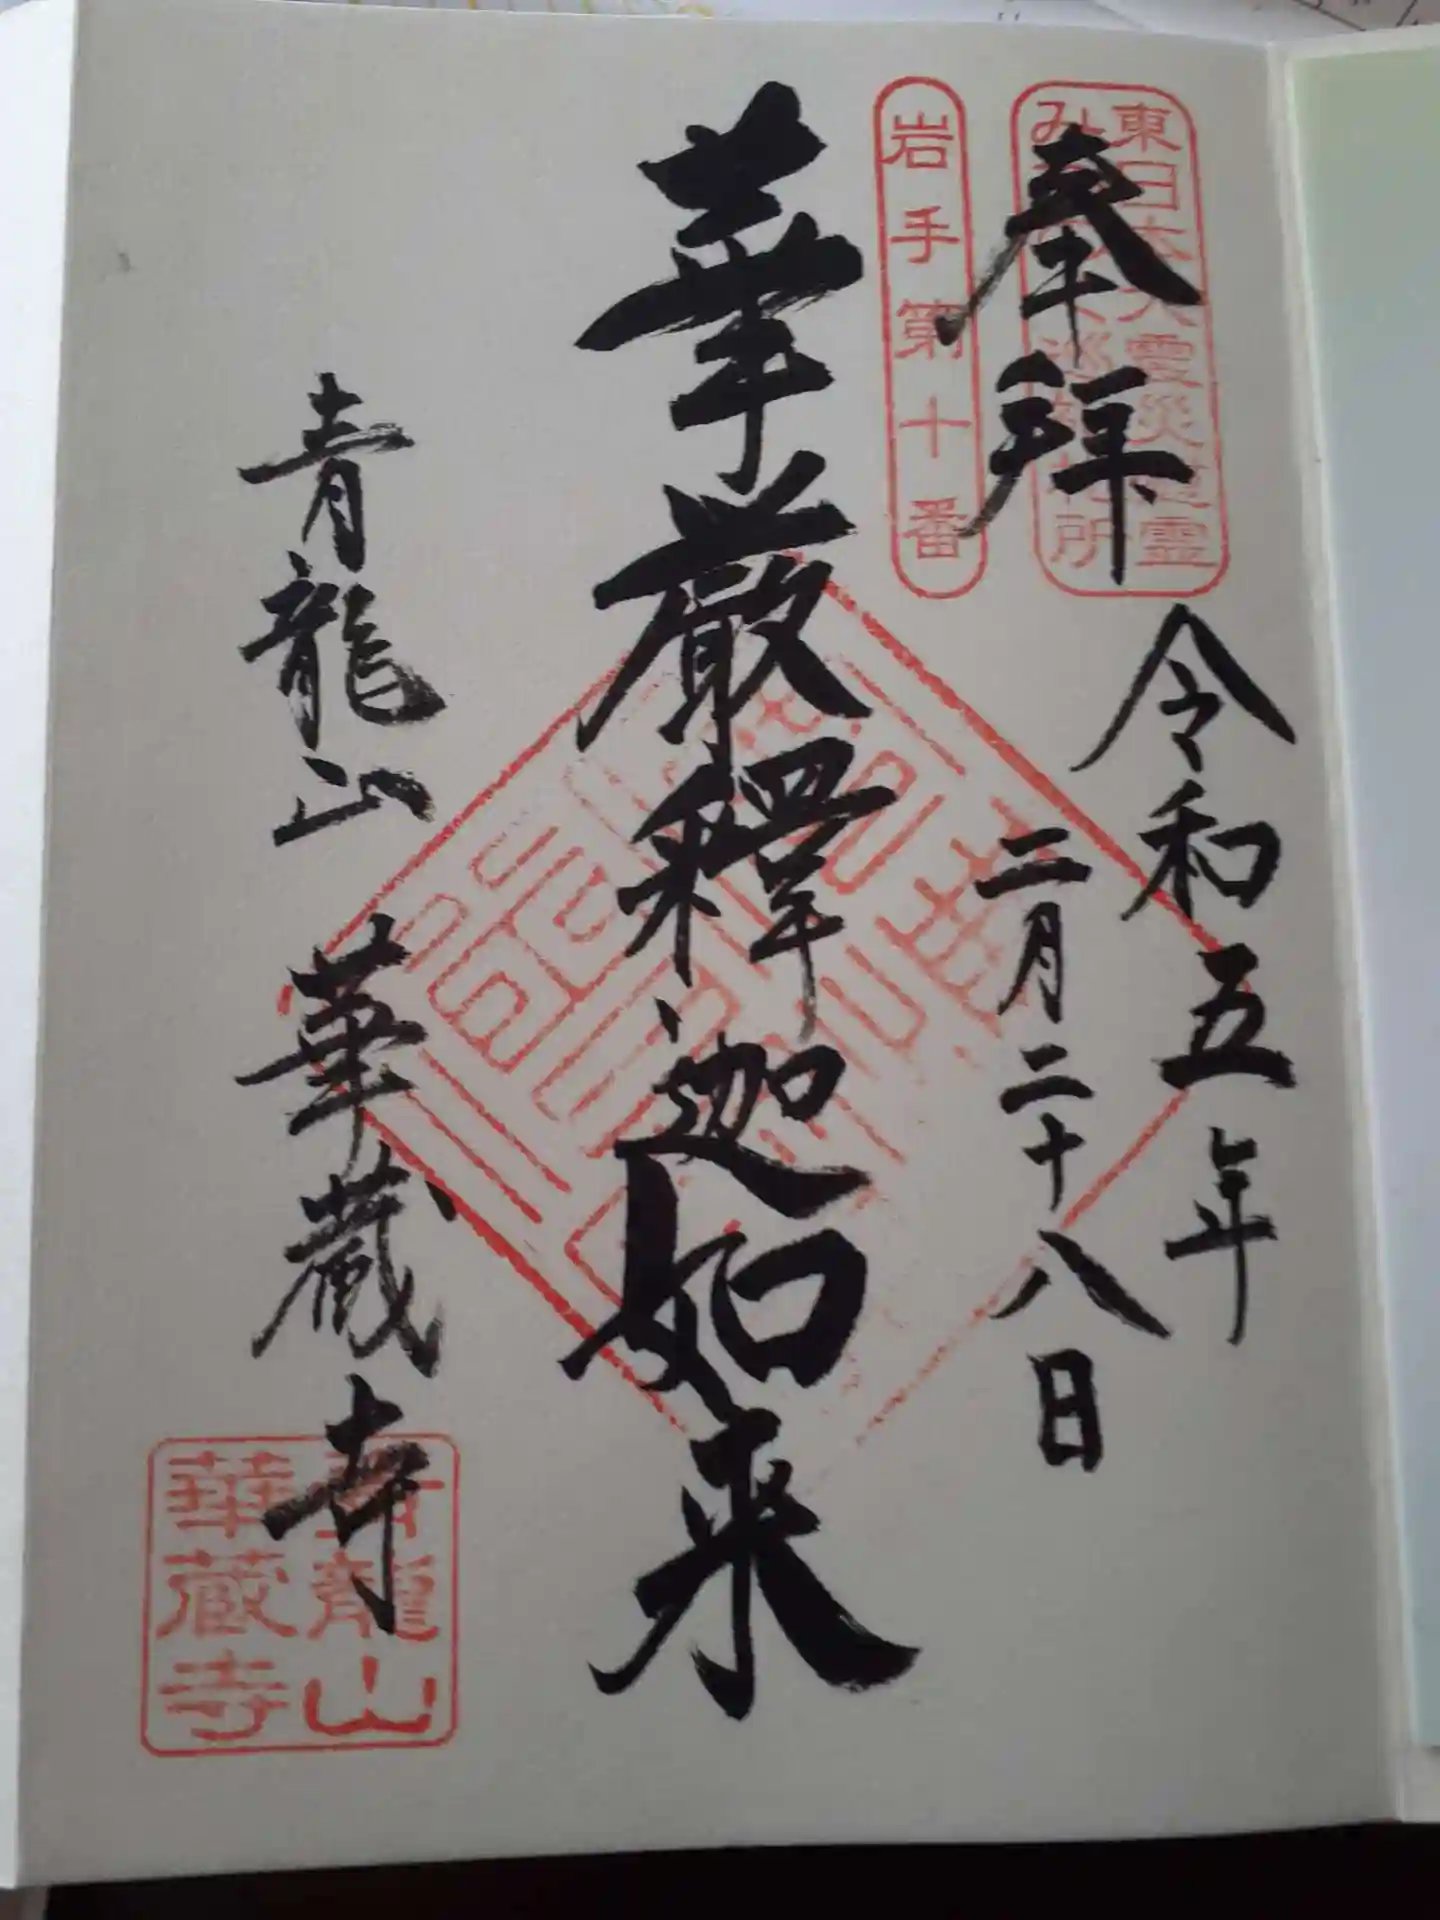 東日本大震災慰霊
岩手第十番
奉拝
令和五年
二月二十八日
華厳釋迦如来
青龍山 華蔵寺
青龍山
華蔵寺